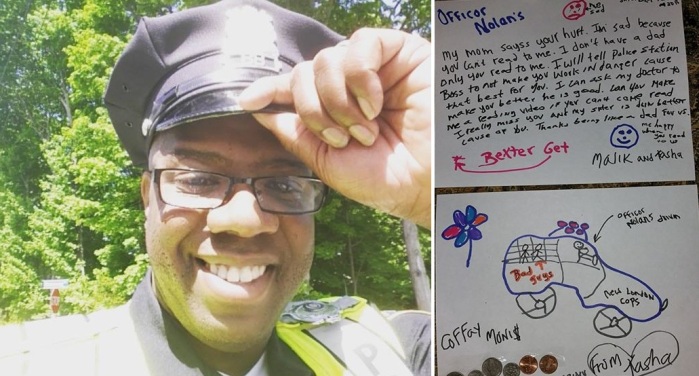 Officer
Nolan's
me
sad
My mom sayss your hurt. Im sad because
you cant read to me. I don't have a dad
only you read to me. I will tell Police Station
Boss to not make you work in danger cause
that best for you. I can ask my doctor to
make you better he is good. Can you
me a reading video if you cant come read
I really miss you and my sister is better
cause of you. Thanks being like a dad for us.
me happy
when
you read
to us
Better Get
MaliK and Tasha
officer
Nolan's driven
Bad
guys
new London
cops
Coffay Moni$
From Tasha
P